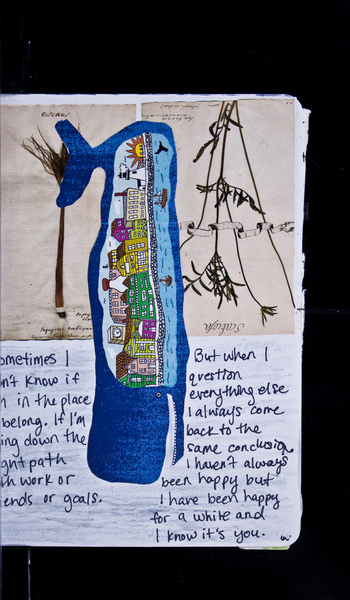 ometimes I
n't know if
in the place
belong. If I'm
ing down the
ght path
th work or
ends or goals.
But when I
question
everything else
I always come
back to the
same conclusion
I haven't always
been happy but
I have been happy
for a while and
I know it's you.